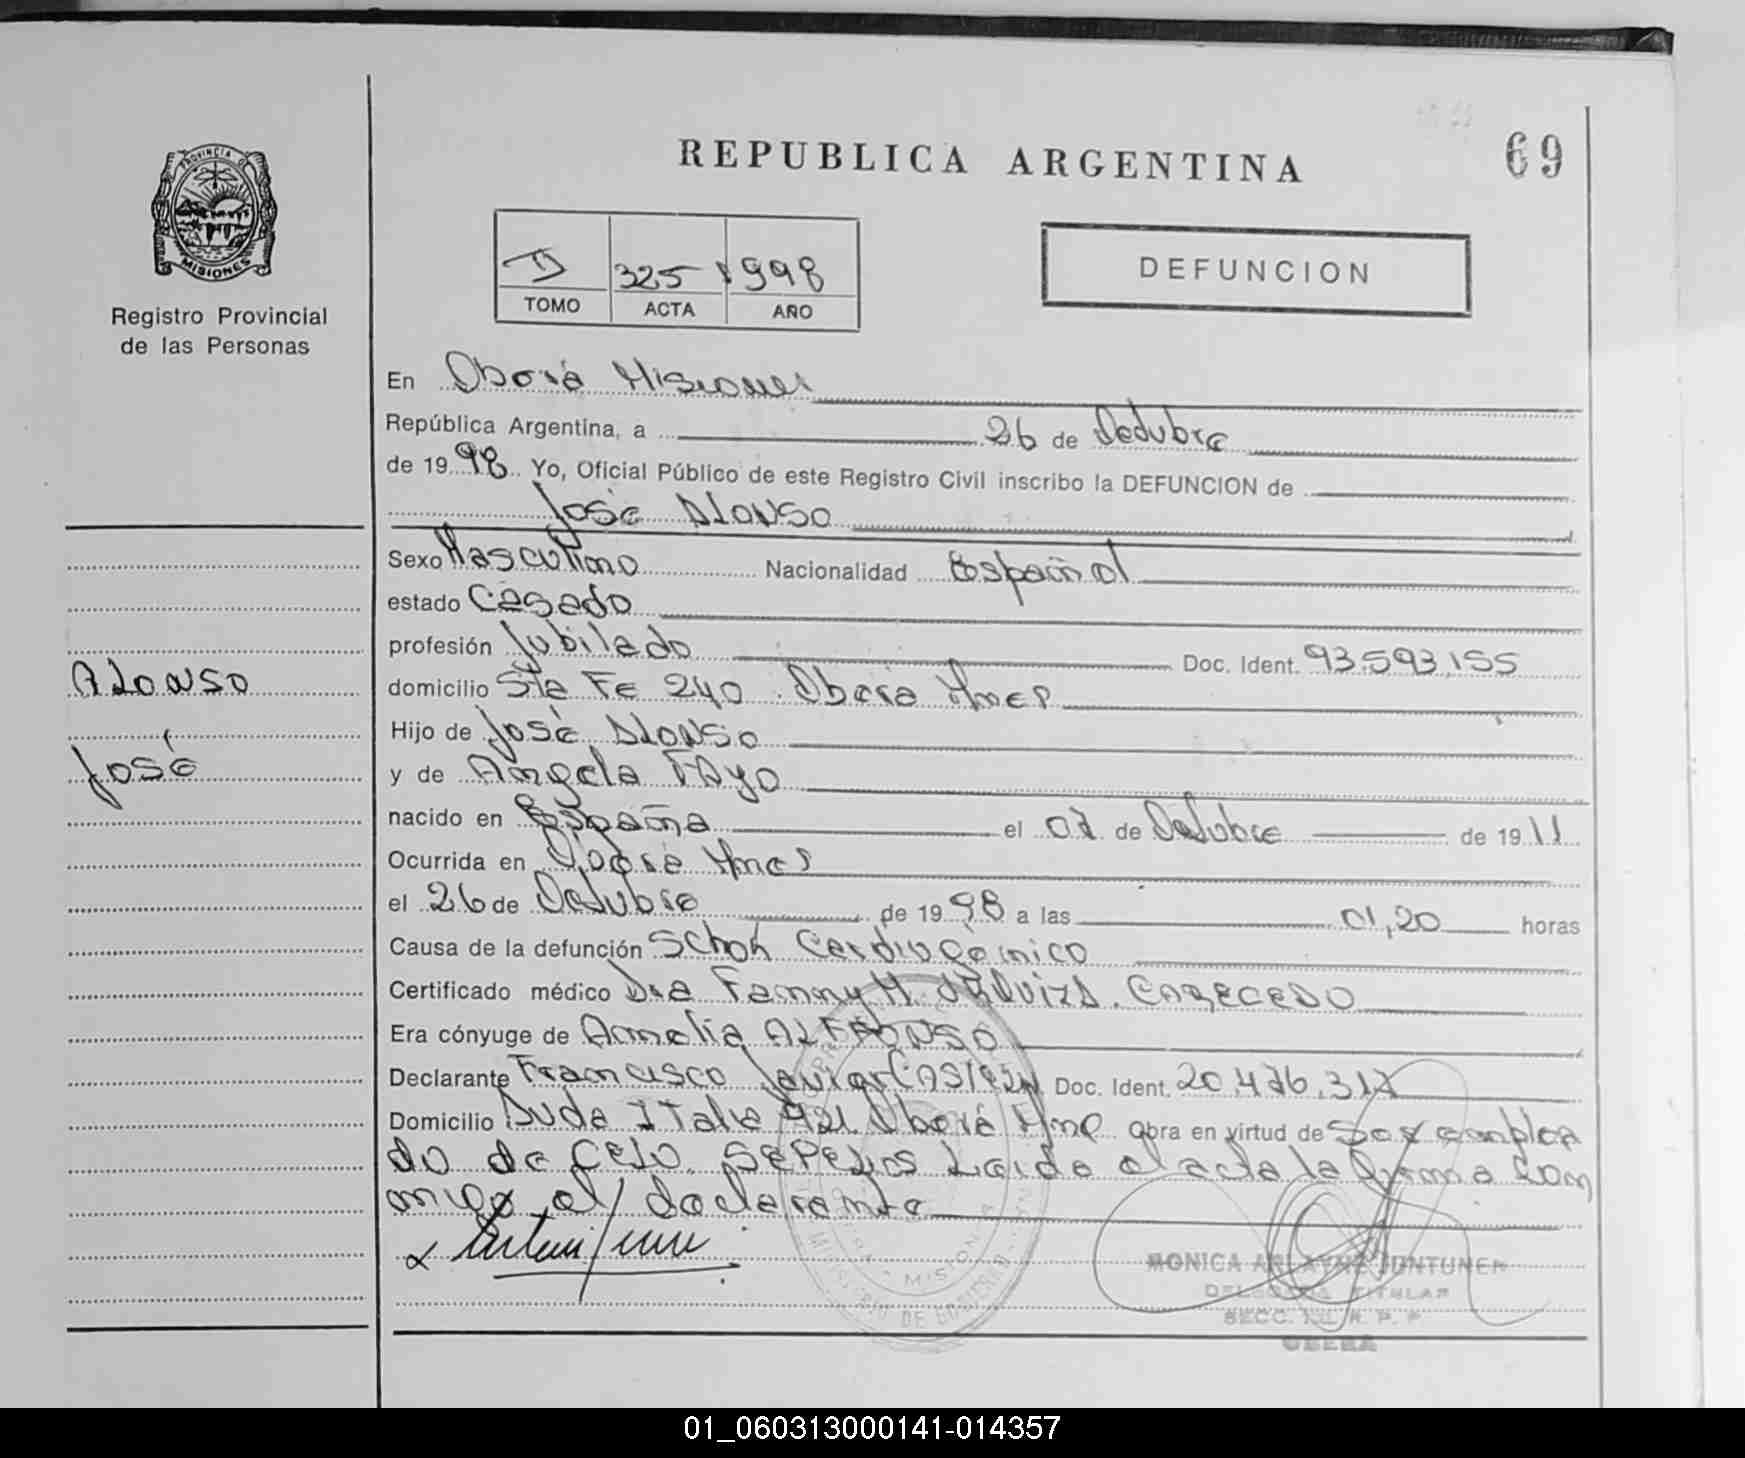 REPUBLICA ARGENTINA
69
PROVINCIA DE
MISIONES
Registro Provincial
de las Personas
325 1998
TOMO ACTA AÑO
DEFUNCION
En Oberá Misiones
República Argentina, a 26 de Octubre
de 1998 Yo, Oficial Público de este Registro Civil inscribo la DEFUNCION de
José ALONSO
Sexo Masculino Nacionalidad Español
estado Casado
profesión Jubilado Doc. Ident. 93.593.155
domicilio Sta Fe 240 Oberá Mnes
Hijo de José ALONSO
y de Angela FAyO
nacido en España el 07 de Octubre de 1911
Ocurrida en Oberá Mnes
el 26 de Octubre de 1998 a las 01,20 horas
Causa de la defunción Schok Cardiogénico
Certificado médico Dra Fanny M. CARECEDO
Era cónyuge de Amelia ALFONSO
Declarante Francisco Javier Doc. Ident. 20.476.317
Domicilio Avda Italia 921 Oberá Mnes Obra en virtud de Ser emplea
do de Celo. Sepelios Leída el acta la firma con
migo el declarante
ALONSO
José
MONICA ARLAYNE
DELEGADA TITULAR
SECC. R. P. P.
OBERA
MISIONES
MINISTERIO DE GOBIERNO
01_060313000141-014357